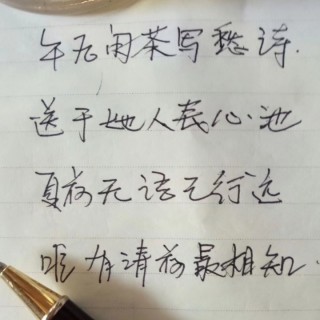 午后闲茶写愁诗.
送于她人表心池
夏荷无语已行远
唯有清荷最相知.